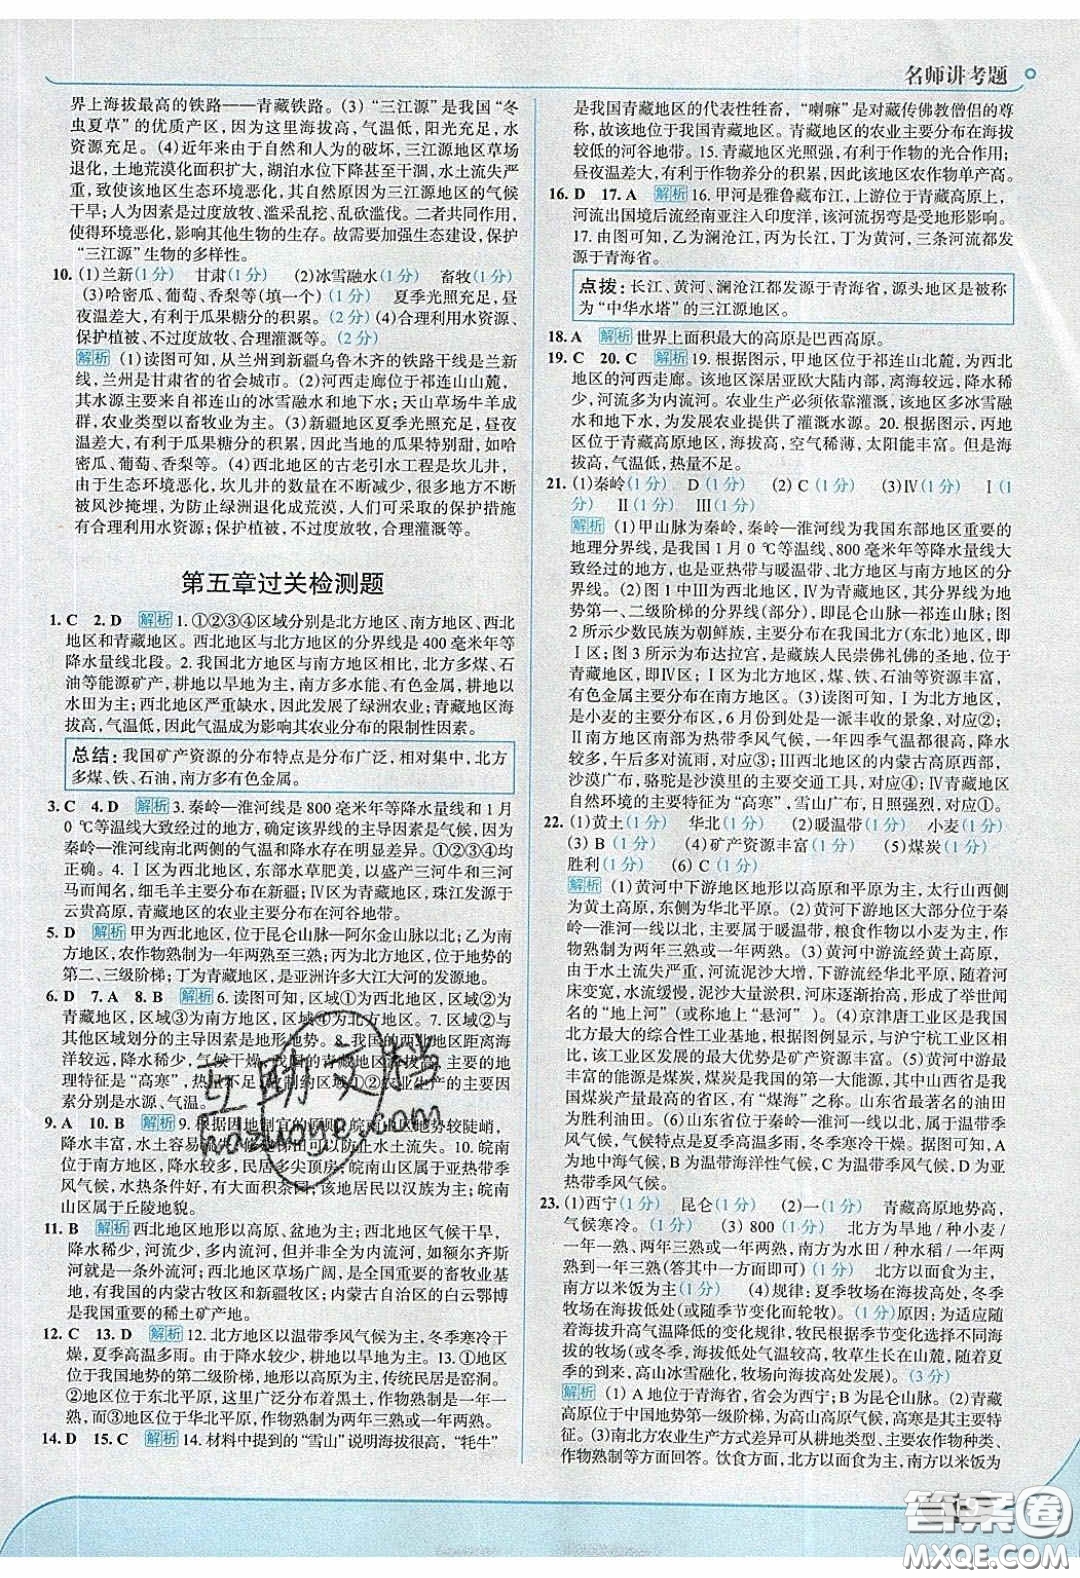 名师讲考题
界上海拔最高的铁路——青藏铁路。(3) “三江源”是我国“冬
虫夏草”的优质产区，因为这里海拔高，气温低，阳光充足，水
资源充足。(4)近年来由于自然和人为的破坏，三江源地区草场
退化，土地荒漠化面积扩大，湖泊水位下降甚至干涸，水土流失严
重，致使该地区生态环境恶化，自然原因为三江源地区的气候
干旱；人为因素是过度放牧、滥采乱挖、乱砍滥伐。二者共同作用，
使得环境恶化，影响其他生物的生存。故需要加强生态建设，保护
“三江源”生物的多样性。
10. (1)兰新(1分) 甘肃(1分) (2)冰雪融水(1分) 畜牧(1分)
(3)哈密瓜、葡萄、香梨等(填一个)(1分) 夏季光照充足，昼
夜温差大，有利于瓜果糖分的积累。(2分) (4)合理利用水资源、
保护植被、不过度放牧、合理灌溉等。(2分)
解析 (1)读图可知，从兰州到新疆乌鲁木齐的铁路干线是兰新
线，兰州是甘肃省的省会城市。(2)河西走廊位于祁连山山麓，
其水源主要来自祁连山的冰雪融水和地下水；天山草场牛羊成
群，农业类型以畜牧业为主。(3)新疆地区夏季光照充足，昼夜
温差大，有利于瓜果糖分的积累，因此当地的瓜果特别甜，如哈
密瓜、葡萄、香梨等。(4)西北地区的古老引水工程是坎儿井，
由于生态环境恶化，坎儿井的数量在不断减少，很多坎儿井
被风沙掩埋，为防止绿洲退化成荒漠，人们可以采取的保护措施
有合理利用水资源；保护植被，不过度放牧，合理灌溉等。
第五章过关检测题
1. C 2. D 解析 1. ①②③④区域分别是北方地区、南方地区、西北
地区和青藏地区。西北地区与北方地区的分界线是 400 毫米年等
降水量线北段。2. 我国北方地区与南方地区相比，北方多煤、石
油等能源矿产，耕地以旱地为主；南方多水能、有色金属，耕地以
水田为主；西北地区严重缺水，因此发展了绿洲农业；青藏地区
海拔高，气温低，因此气温成为影响其农业分布的限制性因素。
总结：我国矿产资源的分布特点是分布广泛，相对集中，北方
多煤、铁、石油，南方多有色金属。
3. C 4. D 解析 3. 秦岭—淮河线是 800 毫米年等降水量线和 1 月
0 ℃等温线大致经过的地方，确定该界线的主导因素是气候，因为
秦岭—淮河线南北两侧的气温和降水有明显差异。故 C 选项说
法正确。4. Ⅰ区为西北地区，东部水草肥美，以盛产三河牛和三河
马而闻名，细毛羊主要分布在新疆；Ⅳ区为青藏地区，珠江发源于
云贵高原，青藏地区的农业主要分布在河谷地带。
5. D 解析 甲为西北地区，位于昆仑山脉—阿尔金山脉以北；乙为南
方地区，农作物熟制为一年两熟至三熟；丙为北方地区，位于地势的
第二、三级阶梯；丁为青藏地区，是亚洲许多大江大河的发源地。
6. D 7. A 8. B 解析 6. 读图可知，区域①为西北地区，区域②为
青藏地区，区域③为南方地区，区域④为北方地区。7. ②区域与
其他区域划分的主导因素是地形地势。8. ①为西北地区距离海
洋较远，降水稀少，气候干燥；②为我国的青藏地区海拔高，主要的
地理特征是“高寒”，热量不足，故制约区域①②农业生产的主要因
素分别是水源、气温。
9. A 10. B 解析 9. 根据因地制宜的原则，皖南山区地势较陡峭，
降水丰富，水土容易流失，修建梯田，可以防止水土流失。10. 皖南
位于南方地区，降水较多，民居多尖顶房；皖南山区属于亚热带季
风气候，水热条件好，有大面积茶园；该地居民以汉族为主；皖南
山区属于丘陵地貌。
11. B 解析 西北地区地形以高原、盆地为主；西北地区气候干旱，
降水稀少，河流少，多内流河，但并非没有外流河，如额尔齐斯
河就是一条外流河；西北地区草场广阔，是全国重要的畜牧业基
地，有著名的内蒙古牧区和新疆牧区；内蒙古自治区的白云鄂博
是我国重要的稀土矿产地。
12. C 13. D 解析 12. 北方地区以温带季风气候为主，冬季寒冷干
燥，夏季高温多雨。由于降水较少，耕地以旱地为主。13. ①地区
位于我国地势的第二级阶梯，地形以高原为主，传统民居是窑洞。
②地区位于东北平原，这里广泛分布着黑土，作物熟制是一年一
熟，而③地区位于华北平原，作物熟制为两年三熟或一年两熟。
14. D 15. C 解析 14. 材料中提到的“雪山”说明海拔很高，“牦牛”
是我国青藏地区的代表性牲畜，“喇嘛”是对藏传佛教僧侣的尊
称，故该地位于我国青藏地区。青藏地区的农业主要分布在海拔
较低的河谷地带。15. 青藏地区光照强，有利于作物的光合作用；
昼夜温差大，有利于作物养分的积累，因此该地区农作物单产高。
16. D 17. A 解析 16. 甲河是雅鲁藏布江，上游位于青藏高原上，
河流出国境后流经南亚注入印度洋，该河流拐弯是受地形影响。
17. 由图可知，乙为澜沧江，丙为长江，丁为黄河，三条河流都发
源于青海省。
点拨：长江、黄河、澜沧江都发源于青海省，源头地区是被称
为“中华水塔”的三江源地区。
18. A 解析 世界上面积最大的高原是巴西高原。
19. C 20. C 解析 19. 根据图示，甲地区位于祁连山北麓，为西北
地区的河西走廊。该地区深居亚欧大陆内部，离海较远，降水稀
少，河流多为内流河。农业生产必须依靠灌溉，该地区多冰雪融
水和地下水，为发展农业提供了灌溉水源。20. 根据图示，丙
地区位于青藏高原地区，海拔高，空气稀薄，太阳能丰富。但是海
拔高，气温低，热量不足。
21. (1)秦岭(1分) D(1分) (2) C(1分) (3)Ⅳ(1分) Ⅰ(1
分) Ⅱ(1分) Ⅲ(1分)
解析 (1)甲山脉为秦岭，秦岭—淮河线为我国东部地区重要的
地理分界线，是我国 1 月 0 ℃等温线、800 毫米年等降水量线大
致经过的地方，也是亚热带与暖温带、北方地区与南方地区的分
界线。(2)图 1 中Ⅲ为西北地区，其分界线为我国地形地
势第一、二级阶梯的分界线(部分)，即昆仑山脉—祁连山脉；图
2 所示少数民族为朝鲜族，主要分布在我国北方(东北)地区，即
Ⅰ区；图 3 所示为布达拉宫，是藏族人民崇佛礼佛的圣地，位于
青藏地区，即Ⅳ区；Ⅰ为北方地区，煤、铁、石油等资源丰富，
有色金属主要分布在南方地区。(3)读图可知，Ⅰ为北方地区，
是小麦的主要分布区，6 月份到处是一派丰收的景象，对应②；
Ⅱ南方地区南部为热带季风气候，一年四季气温都很高，降水
较多，午后多对流雨，对应③；Ⅲ西北地区的内蒙古高原西部，
沙漠广布，骆驼是沙漠里的主要交通工具，对应④；Ⅳ青藏地区
自然环境的主要特征为“高寒”，雪山广布，日照强烈，对应①。
22. (1)黄土(1分) 华北(1分) (2)暖温带(1分) 小麦(1分)
(3) B(1分) (4)矿产资源丰富(1分) (5)煤炭(1分)
胜利(1分) (6) C(1分)
解析 (1)黄河中下游地区地形以高原和平原为主，太行山西侧
为黄土高原，东侧为华北平原。(2)黄河中下游地区大部分位于秦
岭—淮河一线以北，主要属于暖温带，粮食作物以小麦为主，农
作物熟制为两年三熟或一年两熟。(3)黄河中游流经黄土高原，
由于水土流失严重，河流泥沙大增，下游流经华北平原，随着河
床变宽，水流缓慢，泥沙大量淤积，河床逐渐抬高，形成了举世闻
名的“地上河”(或称地上“悬河”)。(4)京津唐工业区是我国
北方最大的综合性工业基地，根据图例显示，与沪宁杭工业区相
比，该工业区发展的最大优势是矿产资源丰富。(5)黄河中游最
丰富的能源是煤炭，煤炭是我国的第一大能源，其中山西省是
我国煤炭产量最高的省区，有“煤海”之称。山东省的油田为
为胜利油田。(6)山东省位于秦岭—淮河一线以北，为温带季风
气候，气候特点是夏季高温多雨，冬季寒冷干燥。据图可知，A
为地中海气候，B 为温带海洋性气候，C 为温带季风气候，D 为亚热
带季风气候。
23. (1)西宁(1分) 昆仑(1分) (2)一(1分) 青藏高原地势高，
气候寒冷。(1分) (3) 800(1分) 北方为旱地/种小麦/
一年一熟、两年三熟或一年两熟，南方为水田/种水稻/一年
两熟到一年三熟(答其中一方面即可)(1分) 北方以面食为主，
南方以米饭为主(1分) (4)规律：夏季牧场在海拔高处，冬季
牧场在海拔低处(或随季节变化而轮牧)。(1分)原因：为适应随
着海拔升高气温降低的变化规律，牧民根据季节变化选择不同海拔
的牧场(或寒冷的冬季，山麓低处气温较高，牧草生长在山麓，而炎
热的夏季，高山冰雪融化，牧场向海拔高处发展)。(3分)
解析 (1) A 地位于青海省，省会为西宁；B 为昆仑山脉。(2)青藏
高原位于中国地势第一级阶梯，平均海拔高，高寒是其主要特
征。(3)南北方农业生产方式差异可从耕地类型、主要农作物种类、
作物熟制等方面回答。饮食方面，北方以面食为主，南方以米饭为
互助文档
hdzuoye.com
答案圈
MXQE.COM